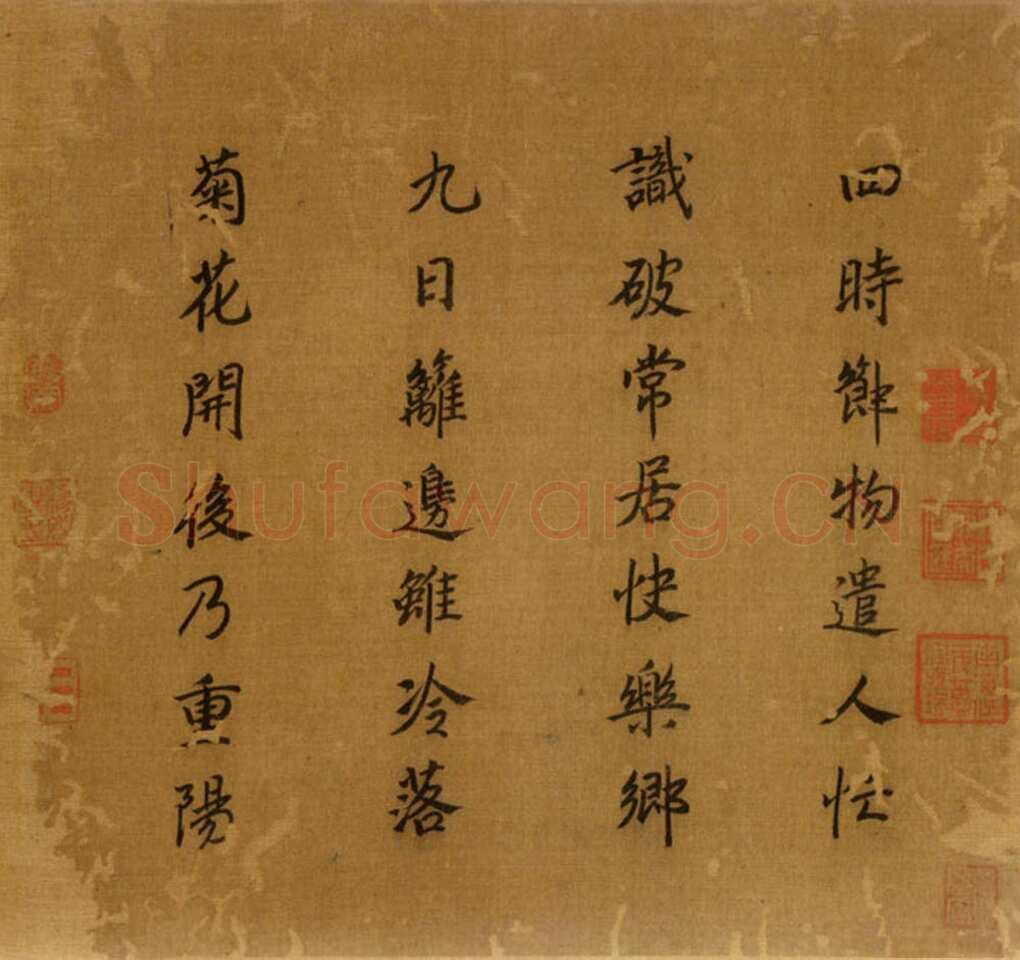 四時節物遣人忙
識破常居快樂鄉
九日籬邊雖冷落
菊花開後乃重陽
Shufawang.cn